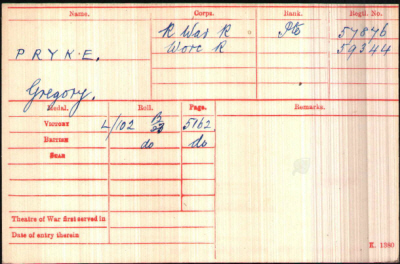 Name. Corps. Rank. Regtl. No.
PRYKE. R War R Pte 57876
Worc R 59344
Gregory.
Medal. Roll. Page. Remarks.
VICTORY L/102 5162
BRITISH do do
STAR
Theatre of War first served in
Date of entry therein
K. 1380